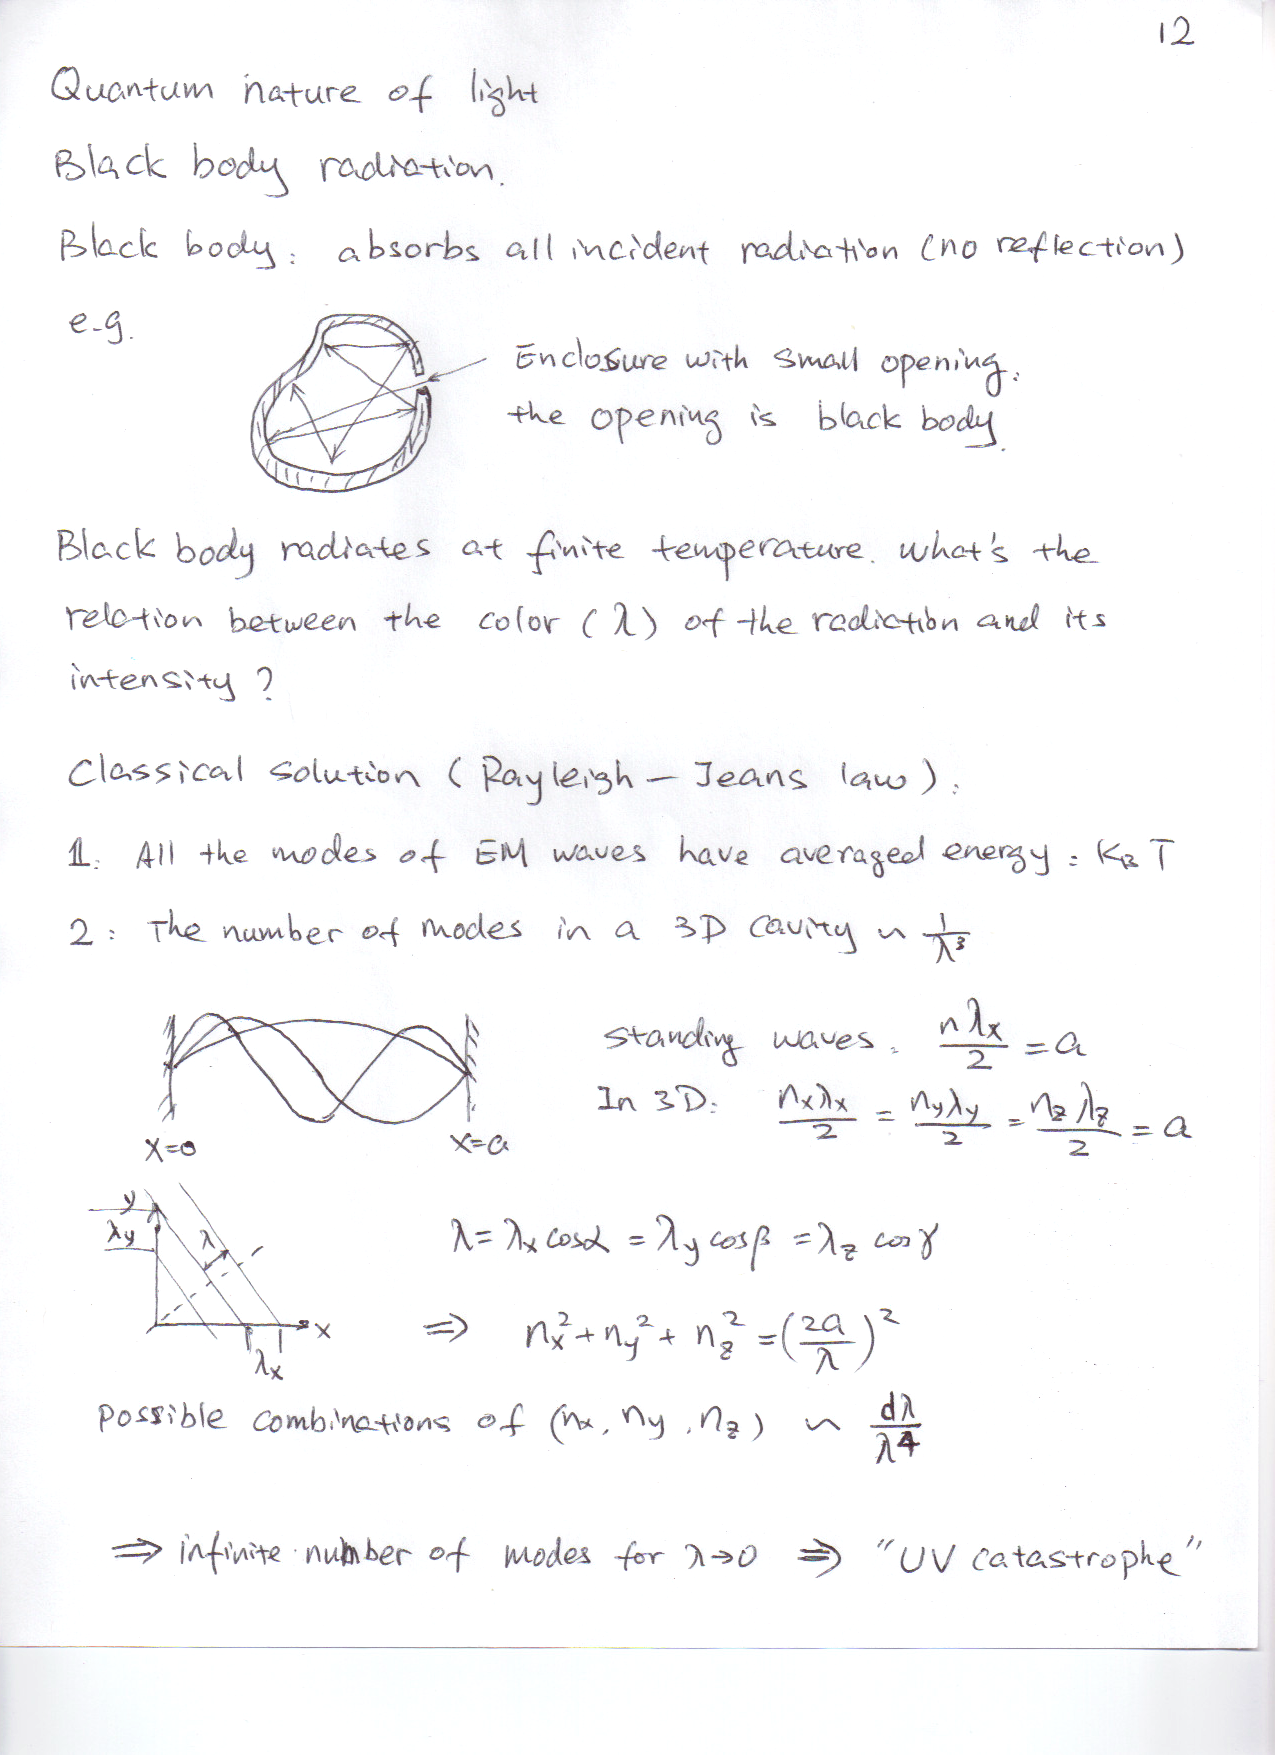 12
Quantum nature of light
Black body radiation.
Black body: absorbs all incident radiation (no reflection)
e.g.
Enclosure with small opening.
the opening is black body.
Black body radiates at finite temperature. what's the
relation between the color (λ) of the radiation and its
intensity?
Classical solution (Rayleigh - Jeans law).
1. All the modes of EM waves have averaged energy: K_B T
2: The number of modes in a 3D cavity ~ 1/λ³
standing waves. nλx/2 = a
In 3D: nxλx/2 = nyλy/2 = nzλz/2 = a
x=0 x=a
y
λy λ
x
λx
λ = λx cosα = λy cosβ = λz cosγ
⇒ nx² + ny² + nz² = (2a/λ)²
possible combinations of (nx, ny, nz) ~ dλ/λ⁴
⇒ infinite number of modes for λ→0 ⇒ "UV catastrophe"